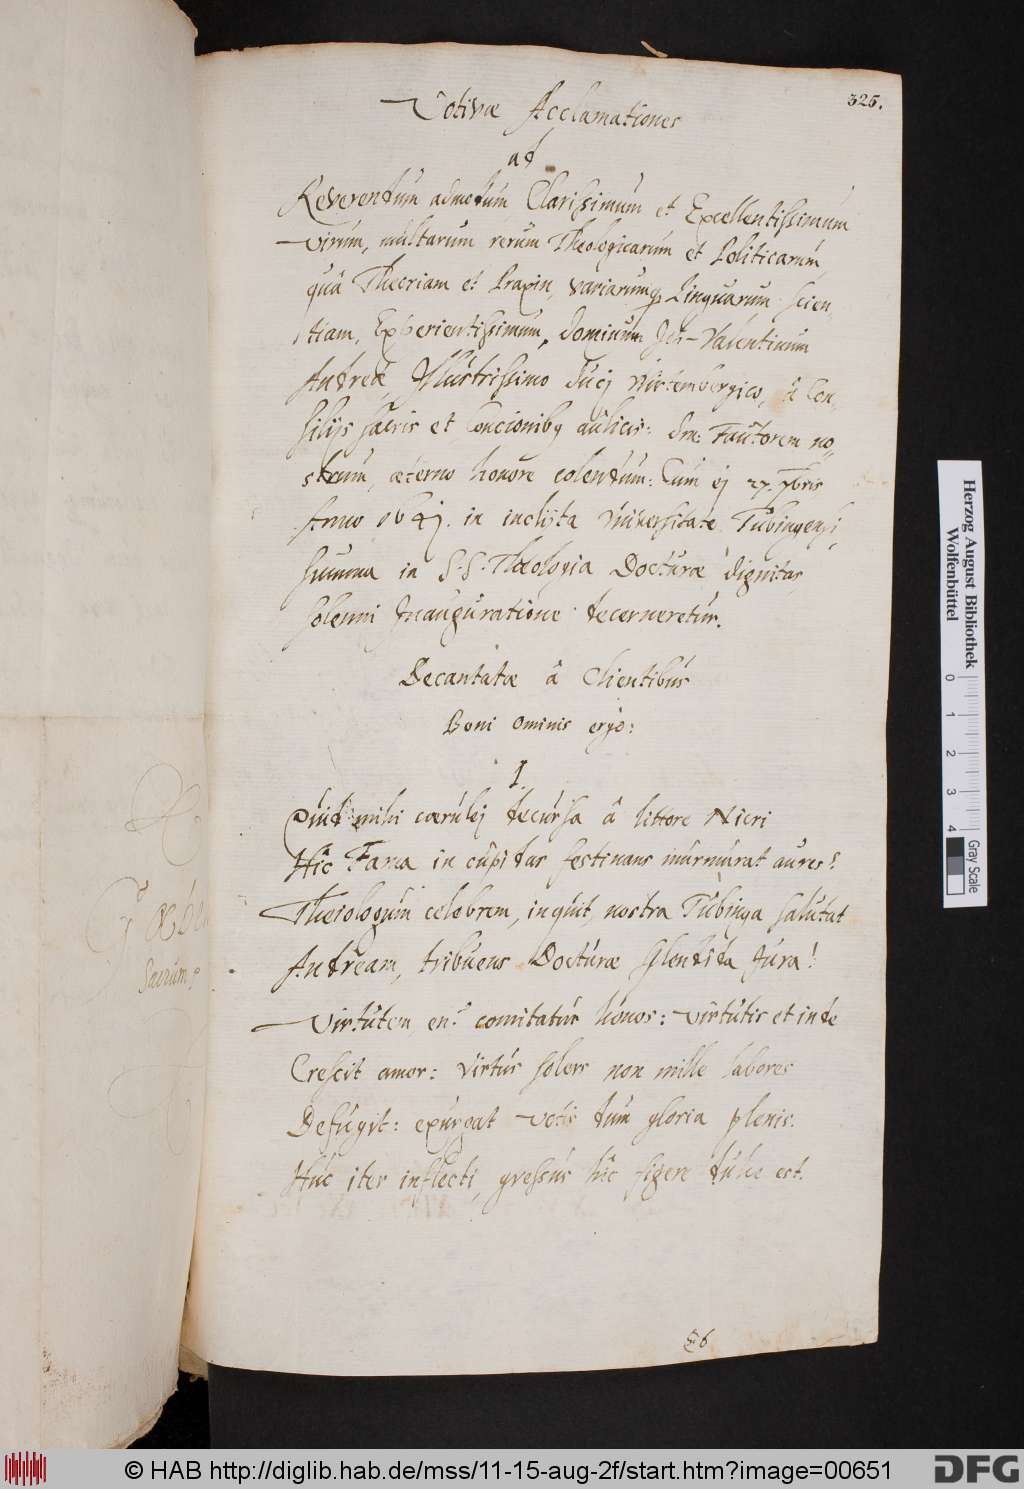 325.
Votivæ Acclamationes
ad
Reverendum admodum, Clarissimum et Excellentissimum
Virum, multarum rerum Theologicarum et Politicarum,
quâ Theoriam et Praxin, variarumq Linguarum scien,
tiam, Experientissimum, Dominum Joh-Valentinum
Andreæ, Illustrissimo Ducj Wirtembergico, â Con,
silijs sacris et Concionibq aulicis: dm: Fautorem no,
strum, æterno honore colendum: Cum ej 27. 7bris
Anno 1641. in inclÿta Universitate Tubingensi,
summa in S.S. Theologia Docturæ dignitas,
solenni Inauguratione decerneretur.
Decantatæ â Clientibus
Boni ominis ergo:
I
Quid mihi cærulej decursa â littore Nicri
Hîc Fama in cupidas festinans murmurat aures?
Theiologum celebrem, inquit, nostra Tubinga salutat
Andream, tribuens Docturæ splendida Jura!
Virtutem en. comitatur honos: virtutis et inde
Crescit amor: virtus solers non mille labores
Defugit: expurgat votis dum gloria plenis.
Huc iter inflecti, gressus hîc figere dulce est.
Sacrum
Herzog August Bibliothek
Wolfenbüttel
0 1 2 3 4
Gray Scale
© HAB http://diglib.hab.de/mss/11-15-aug-2f/start.htm?image=00651
DFG